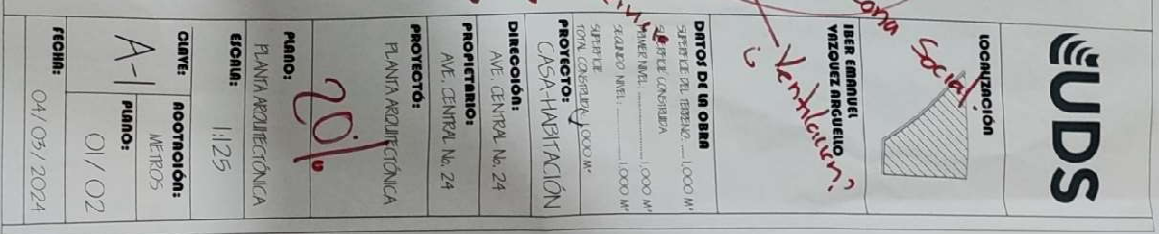 UDS
LOCALIZACIÓN
ona Social
IBER EMANUEL
VAZQUEZ ARGUELLO
¿Ventilacion?
DATOS DE LA OBRA
SUPERFICIE DEL TERRENO.... 1,000 M²
SUPERFICIE CONSTRUIDA
PRIMER NIVEL............1,000 M²
SEGUNDO NIVEL:............1,000 M²
SUPERFICIE
TOTAL CONSTRUIDA: 1,000 M²
PROYECTO:
CASA-HABITACIÓN
DIRECCIÓN:
AVE. CENTRAL No. 24
PROPIETARIO:
AVE. CENTRAL No. 24
PROYECTÓ:
PLANTA ARQUITECTÓNICA
20%
PLANO:
PLANTA ARQUITECTÓNICA
ESCALA:
1:125
CLAVE: ACOTACIÓN:
METROS
A-1
PLANO:
01/02
FECHA:
04/03/2024